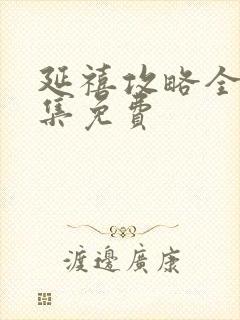 延禧攻略全
集免费
渡邊廣康